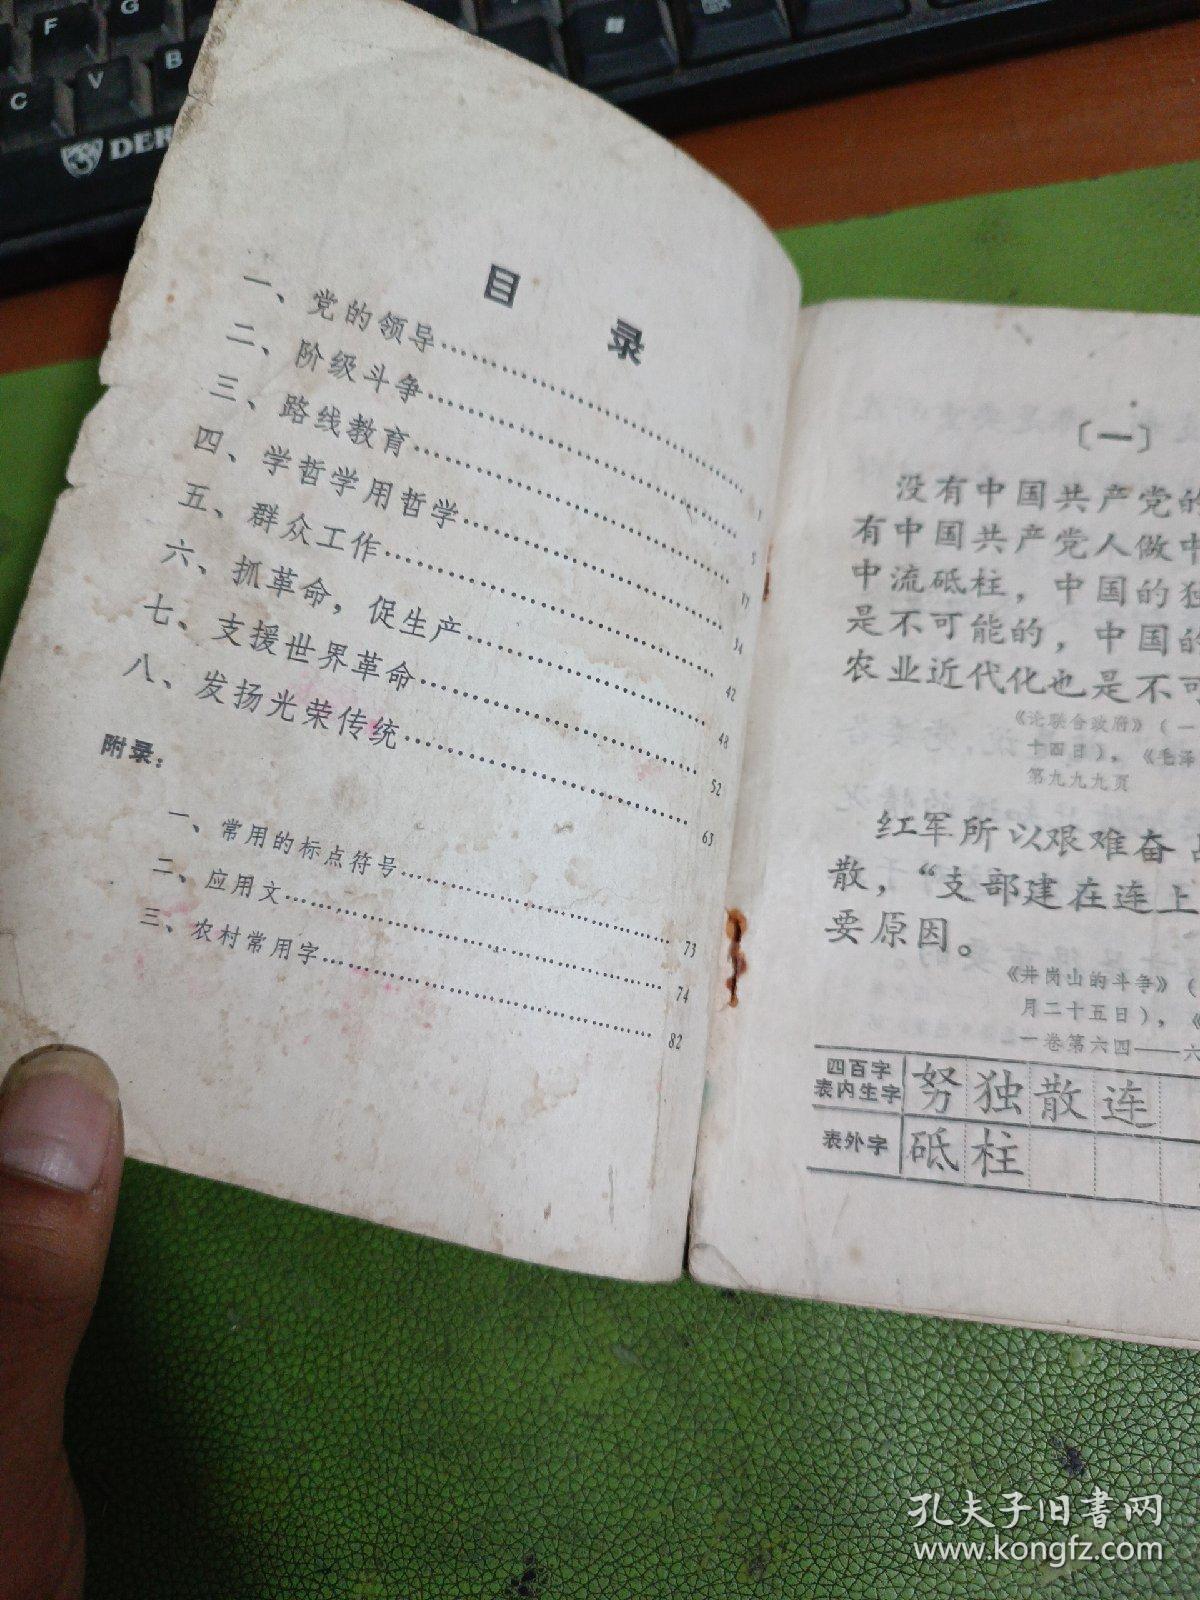 F
G
C
V
B
DER
目 录
一、党的领导……………………………… 1
二、阶级斗争……………………………… 5
三、路线教育……………………………… 17
四、学哲学用哲学………………………… 34
五、群众工作……………………………… 42
六、抓革命，促生产……………………… 48
七、支援世界革命………………………… 52
八、发扬光荣传统………………………… 63
附录：
一、常用的标点符号……………………… 73
二、应用文………………………………… 74
三、农村常用字…………………………… 82
〔一〕
没有中国共产党的
有中国共产党人做中
中流砥柱，中国的独
是不可能的，中国的
农业近代化也是不可
《论联合政府》（一
十四日），《毛泽
第九九九页
红军所以艰难奋战
散，“支部建在连上
要原因。
《井岗山的斗争》（
月二十五日），《
一卷第六四——六
四百字
表内生字
努 独 散 连
表外字
砥 柱
孔夫子旧书网
www.kongfz.com